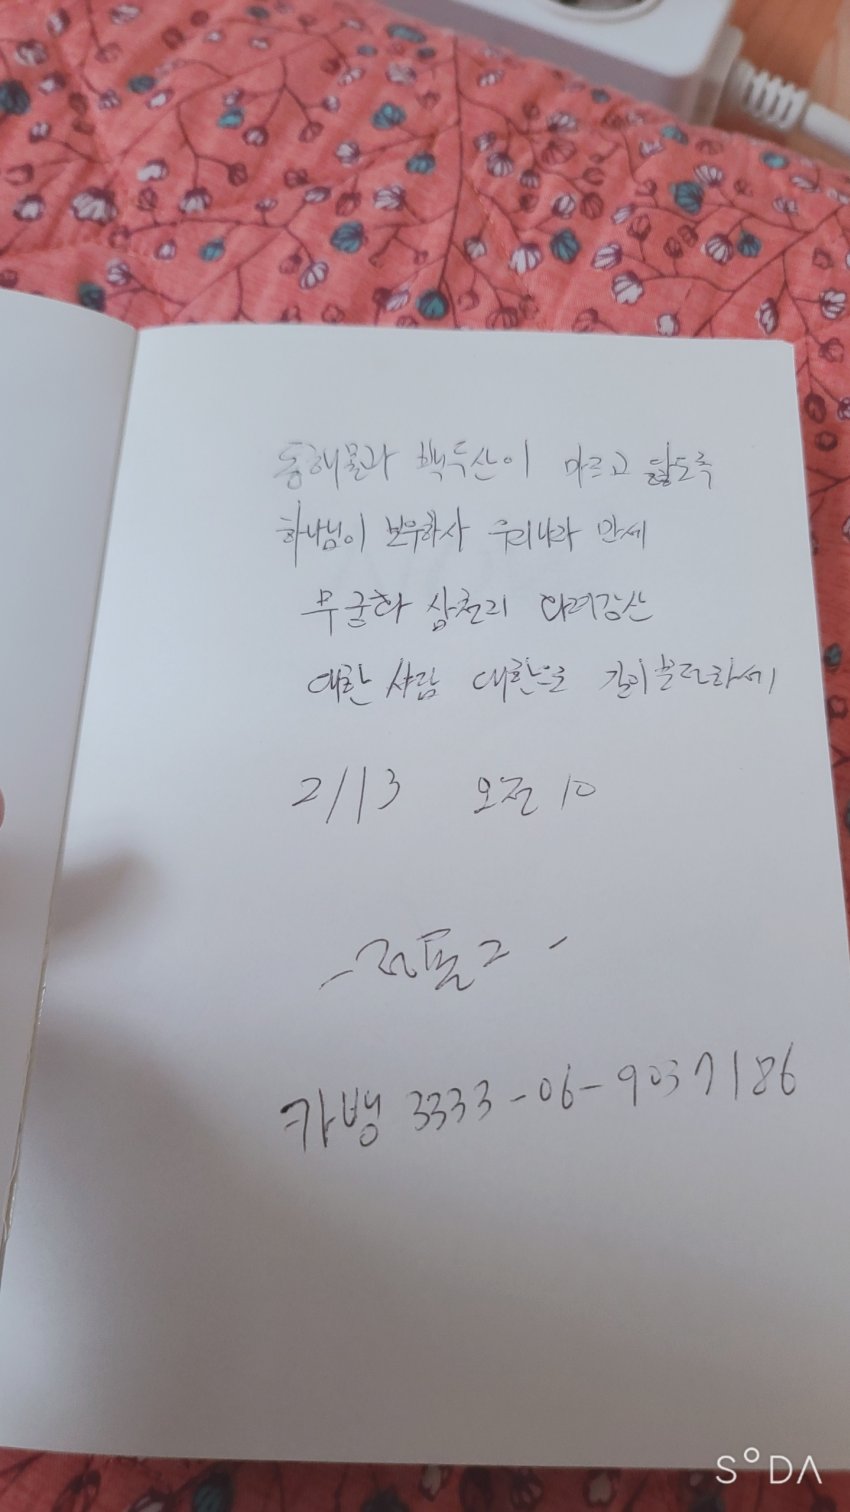 동해물과 백두산이 마르고 닳도록
하나님이 보우하사 우리나라 만세
무궁화 삼천리 화려강산
대한 사람 대한으로 길이 보전하세
2/13 오전 10
카뱅 3333-06-9037186
SODA